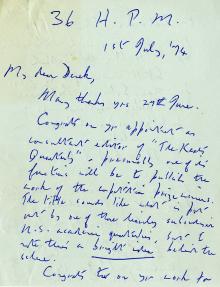 36 H. P. M.
1st July, '74
My dear Derek,
Many thanks yrs 29th June.
Congrats on yr appointment as
consultant editor of "The Keats
Quarterly" – presumably one of its
functions will be to publish the
work of the
The title sounds like
out by one of those
U.S. academic quarterlies, but I
note there's a bright idea behind the
scheme.
Congrats too on yr work for